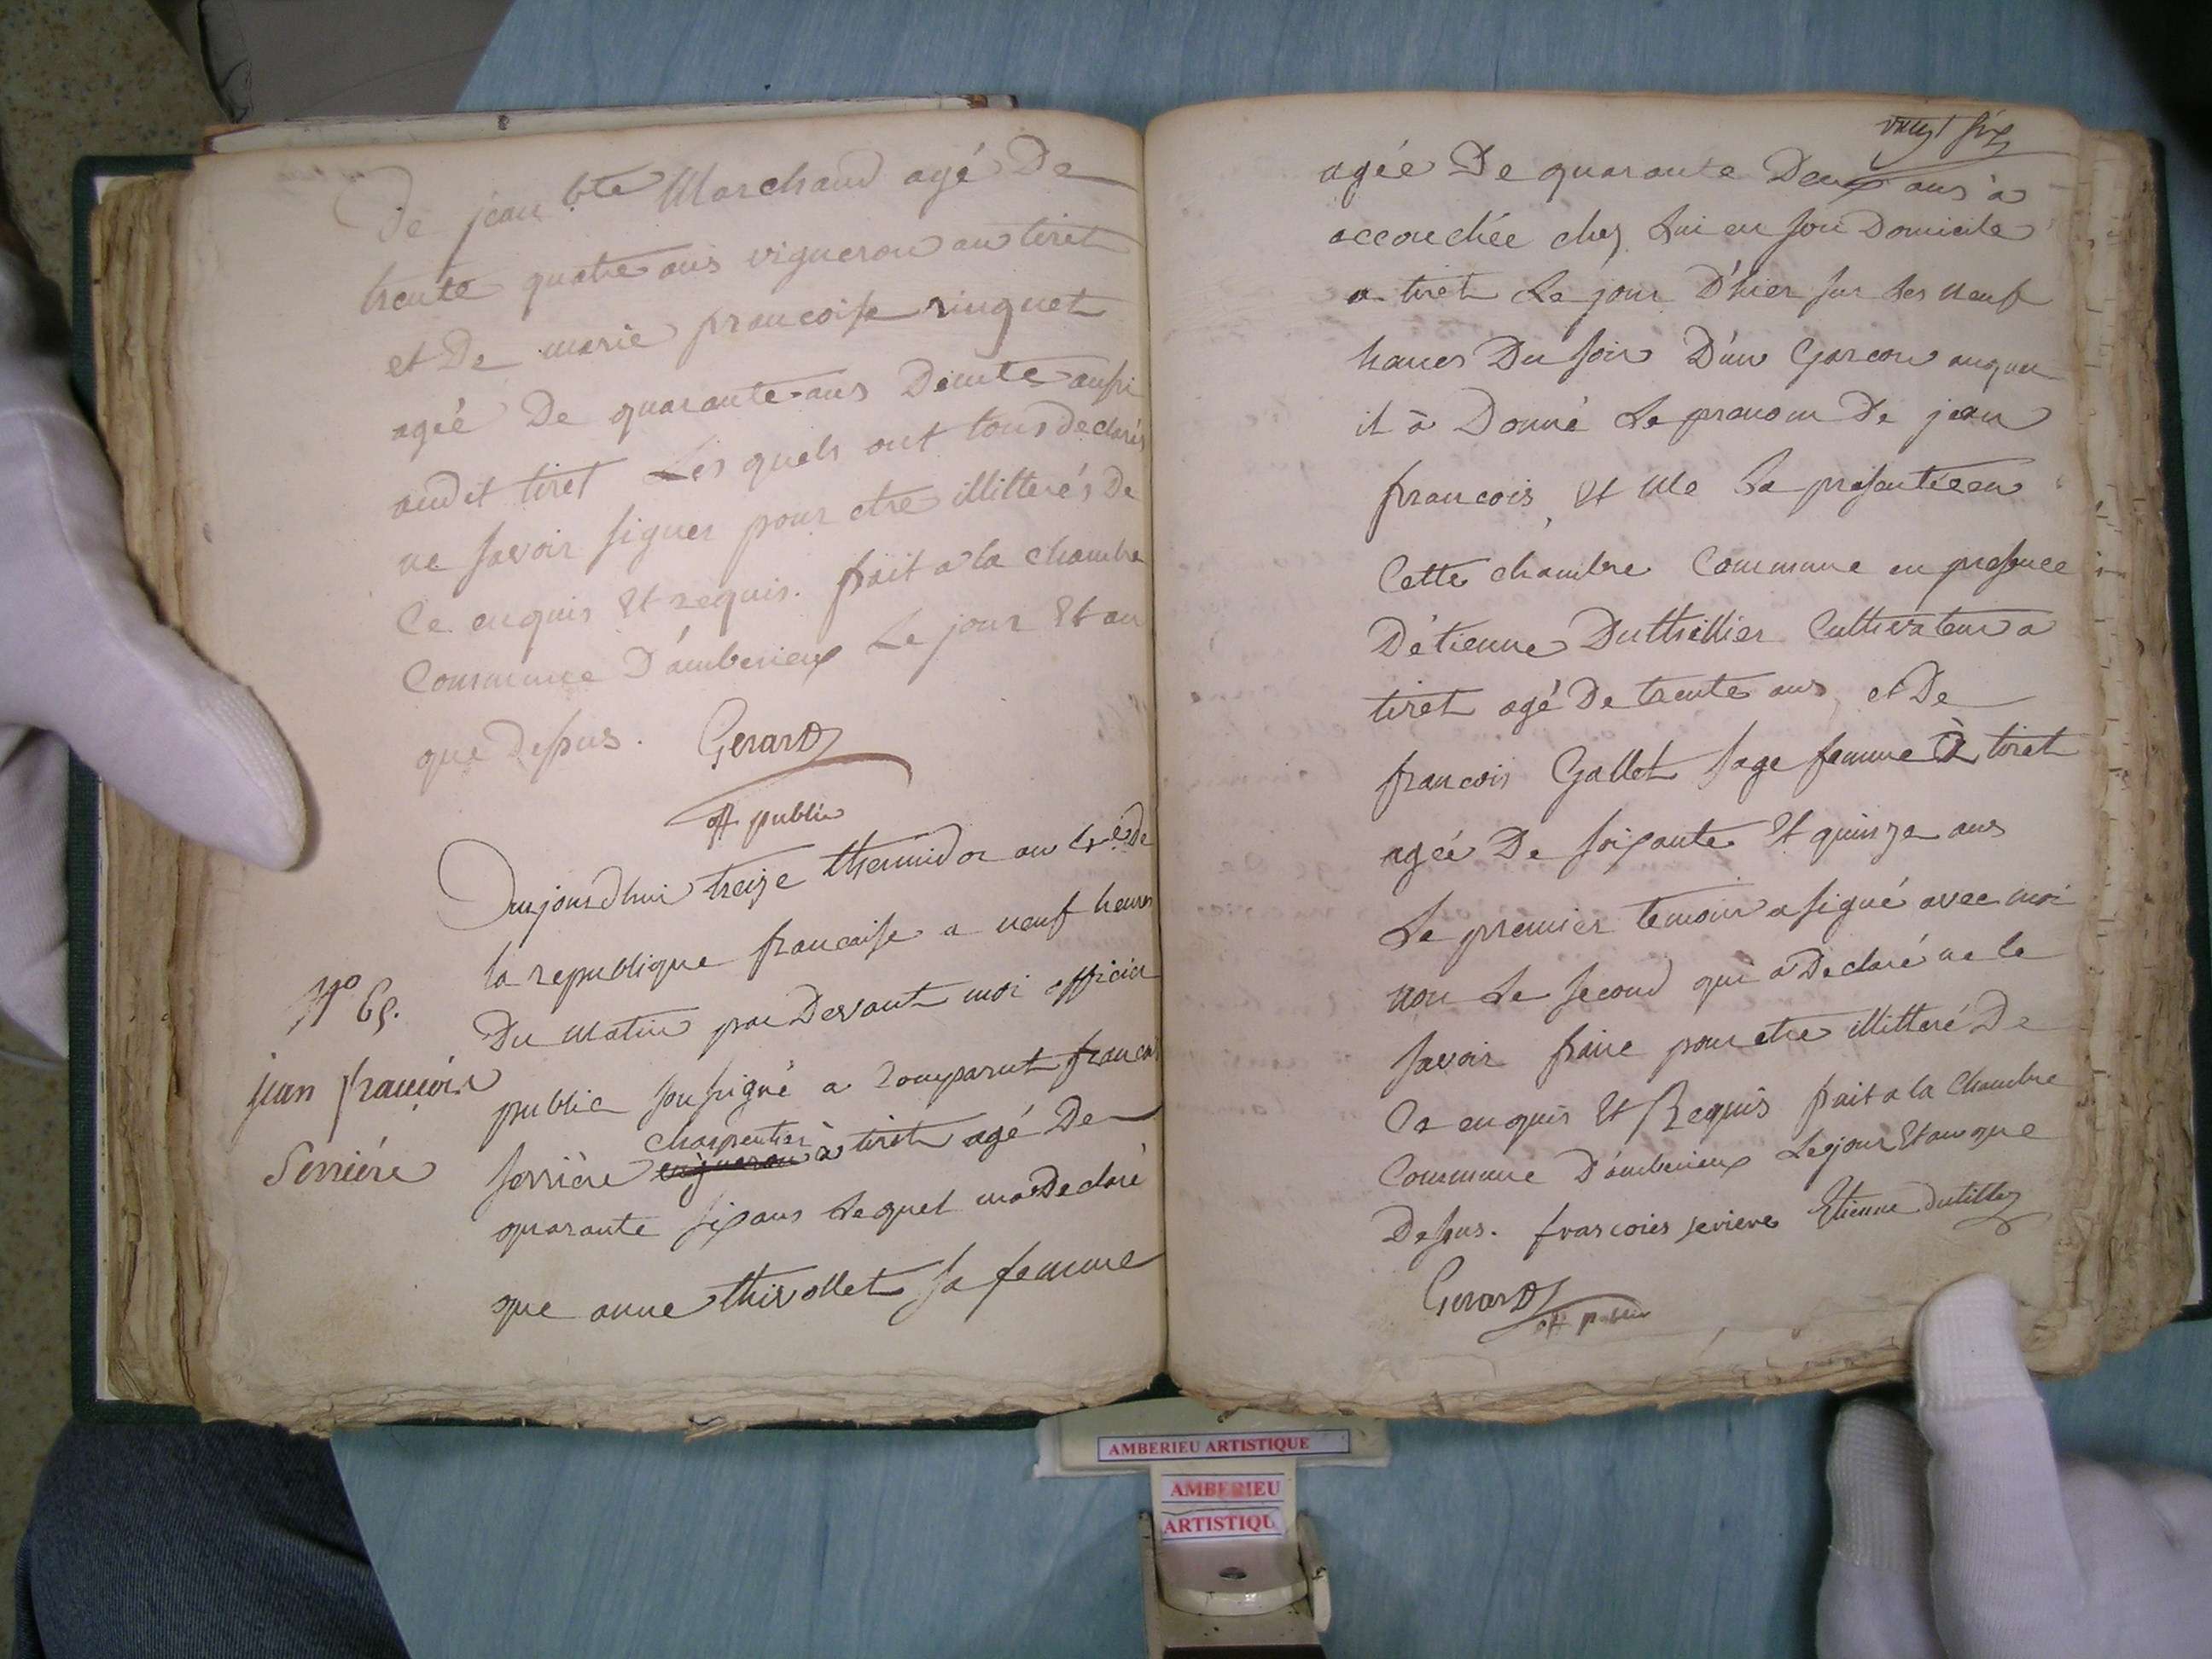 De jean bte Marchand agé De
trente quatre ans vigneron au tiret
et De marie francoise ringuet
agéé De quarante ans Démte aussi
audit tiret Les quels ont tous declarés
ne savoir signer pour etre illitterés De
Ce enquis Et requis. fait a la chambre
Commune D'amberieux Le jour Et an
que Dessus. Gerard
off public
Aujourdhui treize thermidor an de
la republique francaise a neuf heures
Du matin par Devant moi officier
public soussigné a Comparut francois
charpentier
serrière à tiret agé De
quarante six ans Lequel ma Declaré
que anne thivollet sa femme
N°
jean françois
Serriére
vingt six
agée De quarante Deux ans à
accouchée chez Lui en son Domicile
a tiret Le jour D'hier sur les neuf
heures Du soir D'un Garcon auquel
il à Donné Le prenom De jean
francois Et Me La presentée en
Cette chambre Commune en presence
D'étienne Duthillier Cultivateur a
tiret agé De trente ans et De
francois Gallet sage femme à tiret
agéé De soixante Et quinze ans
Le premier temoin a signé avec moi
non Le second qui a Declaré ne le
savoir faire pour etre illitteré De
Ce enquis Et Requis fait a la Chambre
Commune D'amberieux Le jour Et an que
Dessus. francoies seriere Etienne dutillez
Gerard
off public
AMBERIEU ARTISTIQUE
AMBERIEU
ARTISTIQU